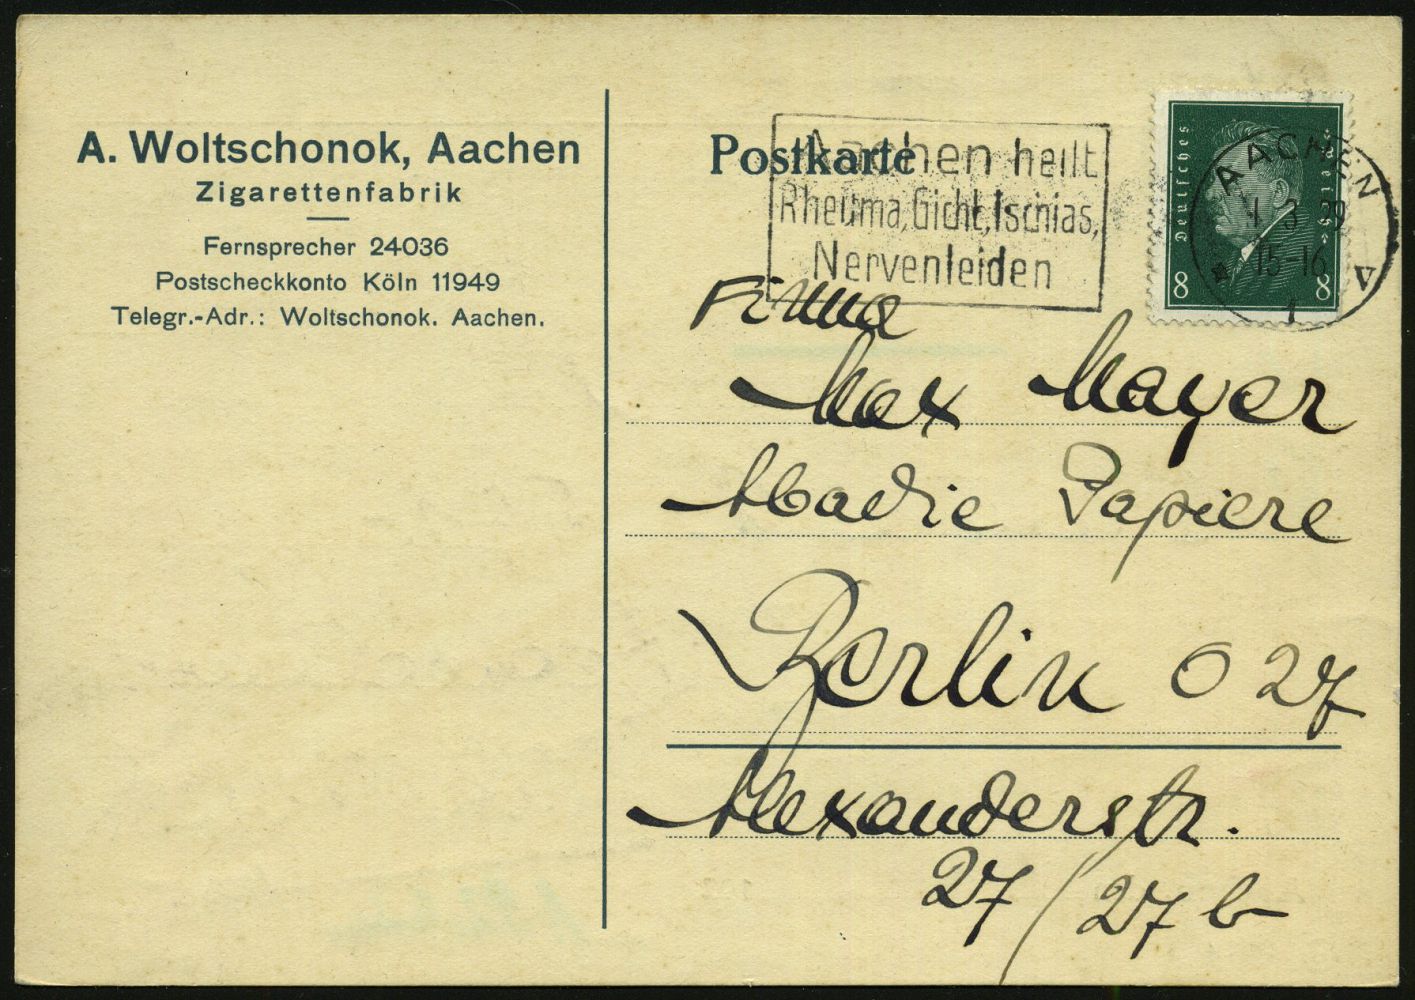 A. Woltschonok, Aachen
Zigarettenfabrik
Fernsprecher 24036
Postscheckkonto Köln 11949
Telegr.-Adr.: Woltschonok. Aachen.
Postkarte
Aachen heilt
Rheuma, Gicht, Ischias,
Nervenleiden
Deutsches Reich
8 8
AACHEN
3 29
15-16
* 1 V
Firma
Max Mayer
Abadie Papiere
Berlin O 27
Alexanderstr.
27/27b